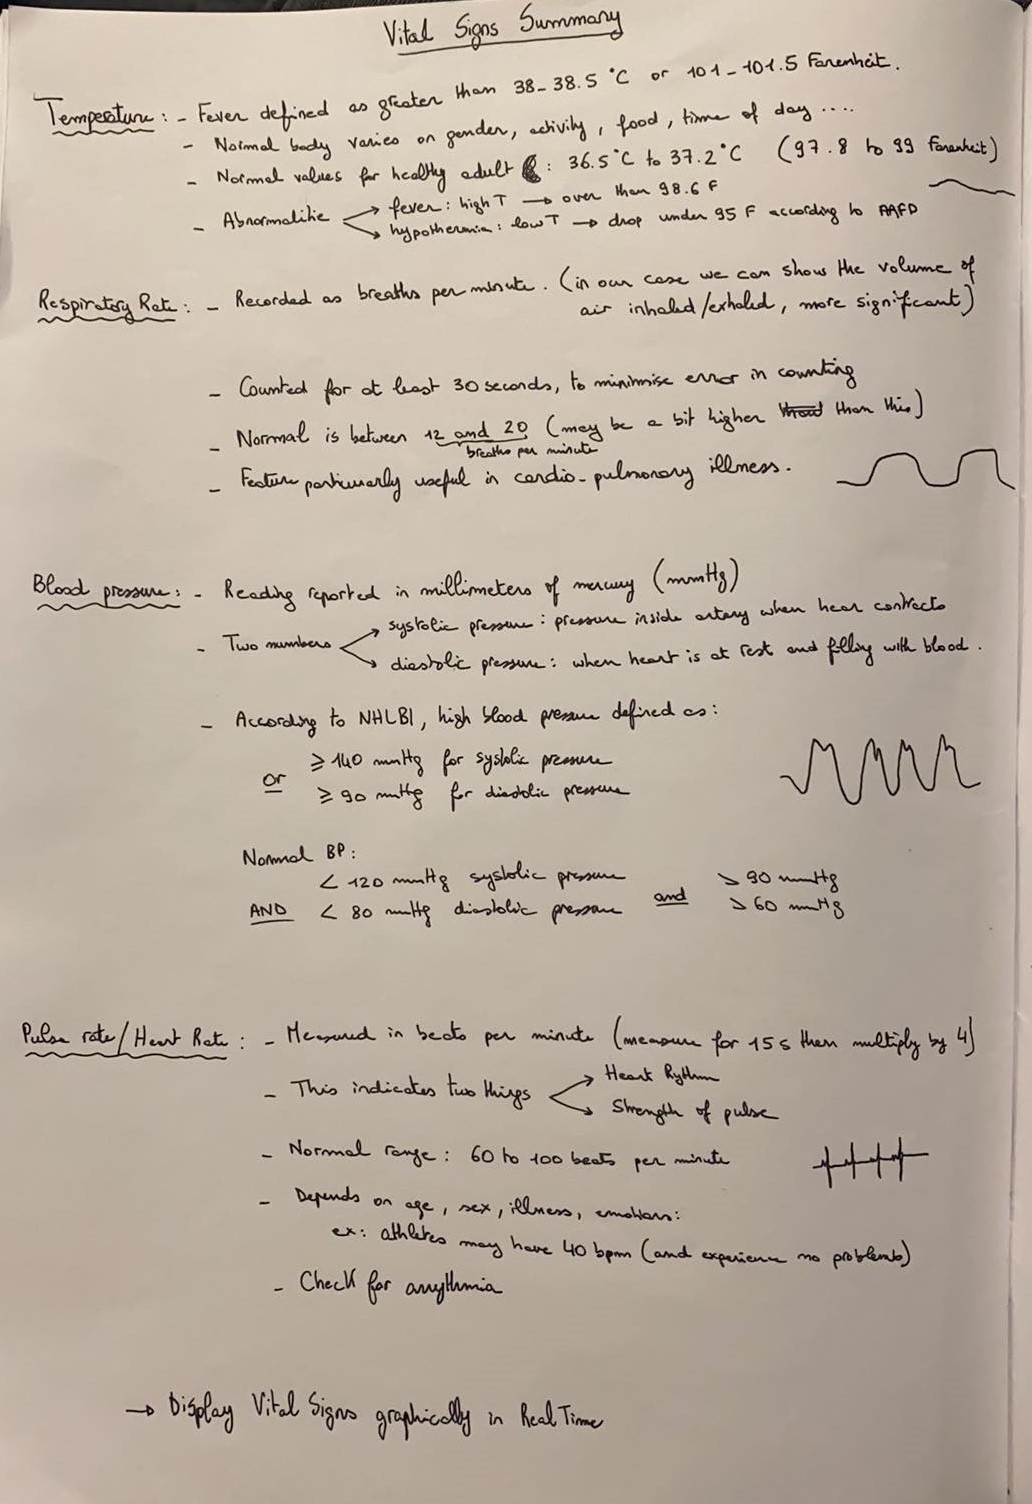 Vital Signs Summary
Temperature : - Fever defined as greater than 38-38.5 °C or 101-101.5 Farenheit.
- Normal body varies on gender, activity, food, time of day ....
- Normal values for healthy adult : 36.5°C to 37.2°C (97.8 to 99 Farenheit)
- Abnormalitie → fever : high T → over than 98.6 F
→ hypothermia : low T → drop under 95 F according to AAFD
Respiratory Rate : - Recorded as breaths per minute. (in our case we can show the volume of
air inhaled/exhaled, more significant)
- Counted for at least 30 seconds, to minimise error in counting
- Normal is between 12 and 20 (may be a bit higher than this)
breaths per minute
- Feature particularly useful in cardio-pulmonary illness.
Blood pressure : - Reading reported in millimeters of mercury (mmHg)
- Two numbers → systolic pressure : pressure inside artery when hear contracts
→ diastolic pressure : when heart is at rest and filling with blood.
- According to NHLBI, high blood pressure defined as :
≥ 140 mmHg for systolic pressure
or
≥ 90 mmHg for diastolic pressure
Normal BP :
< 120 mmHg systolic pressure > 90 mmHg
AND < 80 mmHg diastolic pressure and > 60 mmHg
Pulse rate/Heart Rate : - Measured in beats per minute (measure for 15s then multiply by 4)
- This indicates two things → Heart Rythm
→ Strength of pulse
- Normal range : 60 to 100 beats per minute
- Depends on age, sex, illness, emotions :
ex : athletes may have 40 bpm (and experience no problems)
- Check for arrythmia
→ Display Vital Signs graphically in Real Time